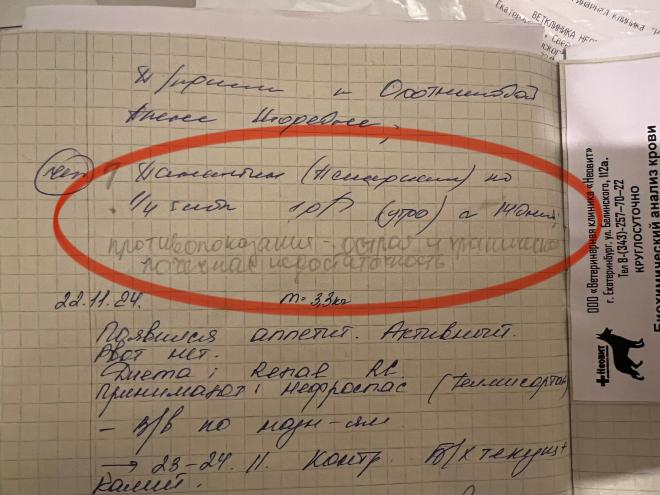 ВЕТКЛИНИКА
Т/приём к Охотниковой
Анне Игоревне,
(Аспаркам) по
1/4 табл 1р/д (утро) - 14 дней,
противопоказания - острая и хроническая
почечная недостаточность
22.11.24. m=3,3кг
Появился аппетит. Активный.
Рвот нет.
Диета: Renal RC.
Принимают: Нефроспас (Телмисартан)
- В/в по назн-ям
→ 23-24.11. контр. Б/х текущ +
калий.
ООО «Ветеринарная клиника «Неовит»
г. Екатеринбург, ул. Белинского, 112а.
Тел 8-(343)-257-70-22
КРУГЛОСУТОЧНО
Биохимический анализ крови
Неовит